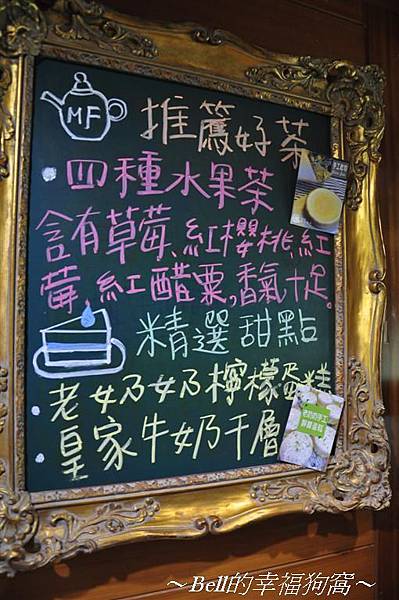 MF
推薦好茶
四種水果茶
含有草莓、紅櫻桃、紅
莓、紅醋栗,香氣十足。
精選甜點
老奶奶檸檬蛋糕
皇家牛奶千層
～Bell的幸福狗窩～